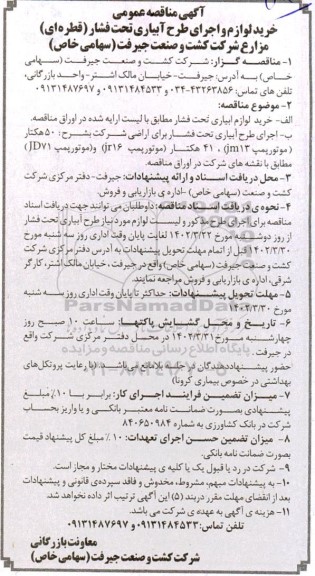 آگهی مناقصه عمومی
خرید لوازم و اجرای طرح آبیاری تحت فشار (قطره ای)
مزارع شرکت کشت و صنعت جیرفت (سهامی خاص)
۱- مناقصه گزار: شرکت کشت و صنعت جیرفت (سهامی
خاص) به آدرس: جیرفت-خیابان مالک اشتر- واحد بازرگانی،
تلفن های تماس: ۴۳۲۶۳۸۵۶-۰۳۴ و ۰۹۱۳۱۴۸۴۵۳۳ و ۰۹۱۳۱۴۸۷۶۹۷
۲- موضوع مناقصه:
الف- خرید لوازم ابیاری تحت فشار مطابق با لیست ارایه شده در اوراق مناقصه.
ب- اجرای طرح آبیاری تحت فشار برای اراضی شرکت بشرح: ۵۰ هکتار
(موتورپمپ jm۱۳) ، ۴۱ هکتار (موتورپمپ jr۱۶) و(موتورپمپ JD۷۱)
مطابق با نقشه های شرکت در اوراق مناقصه.
۳- محل دریافت اسناد و ارائه پیشنهادات: جیرفت- دفتر مرکزی شرکت
کشت و صنعت (سهامی خاص) -اداره ی بازاریابی و فروش.
۴- نحوه ی دریافت اسناد مناقصه: داوطلبان می توانند جهت دریافت اسناد
مناقصه برای اجرای طرح مذکور و لیست لوازم مورد نیاز طرح آبیاری تحت فشار
از روز دوشنبه مورخ ۱۴۰۲/۳/۲۲ لغایت پایان وقت اداری روز سه شنبه مورخ
۱۴۰۲/۳/۳۰ قبل از اتمام مهلت تحویل پیشنهادات به آدرس دفتر مرکزی شرکت
کشت و صنعت جیرفت (سهامی خاص) واقع در جیرفت، خیابان مالک اشتر، کارگر
شرقی، اداره ی بازاریابی و فروش مراجعه نمایند.
۵- مهلت تحویل پیشنهادات: حداکثر تا پایان وقت اداری روز سه شنبه
مورخ ۱۴۰۲/۳/۳۰
۶- تاریخ و محل گشایش پاکتها: ساعت ۱۰ صبح روز
چهارشنبه مورخ ۱۴۰۲/۳/۳۱ در محل دفتر مرکزی شرکت واقع
در جیرفت.
حضور پیشنهاددهندگان در جلسه بلامانع می باشد. (با رعایت پروتکل های
بهداشتی در خصوص بیماری کرونا)
۷- میزان تضمین فرایند اجرای کار: برابر با ۱۰٪ مبلغ
پیشنهادی بصورت ضمانت نامه معتبر بانکی و یا واریز بحساب
شرکت در بانک کشاورزی به شماره ۸۴۰۶۵۰۹۸۴
۸- میزان تضمین حسن اجرای تعهدات: ۱۰٪ مبلغ کل پیشنهاد قیمت
بصورت ضمانت نامه بانکی.
۹- شرکت در رد یا قبول یک یا کلیه ی پیشنهادات مختار و مجاز است.
۱۰- به پیشنهادات مبهم، مشروط، مخدوش و فاقد سپرده ی قانونی و پیشنهادات
بعد از انقضای مهلت مقرر دربند (۵) این آگهی ترتیب اثر داده نخواهد شد.
۱۱- هزینه ی آگهی به عهده ی شرکت می باشد.
تلفن تماس: ۰۹۱۳۱۴۸۴۵۳۳ و ۰۹۱۳۱۴۸۷۶۹۷
معاونت بازرگانی
شرکت کشت و صنعت جیرفت (سهامی خاص)
ParsNamadData
پایگاه اطلاع رسانی مناقصه و مزایده